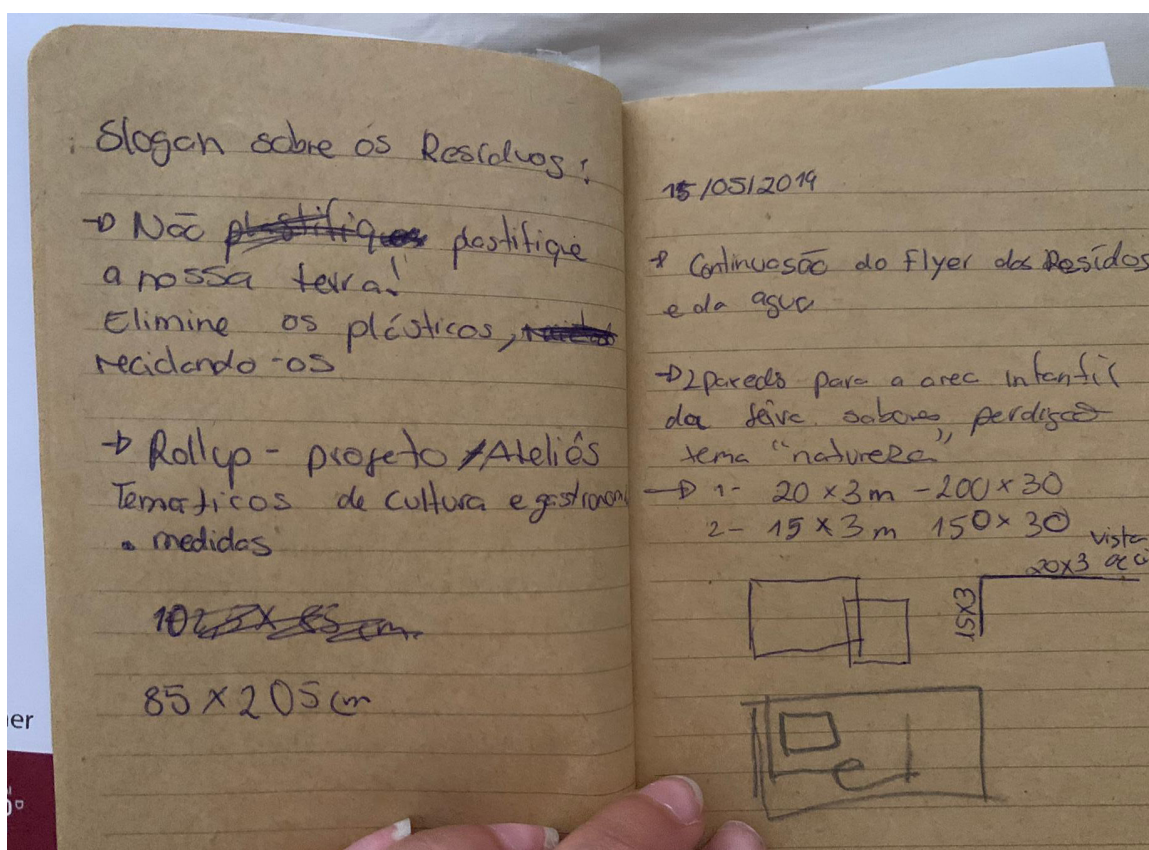 Slogan sobre os Resíduos:
→ Não plastifique
a nossa terra!
Elimine os plásticos,
reciclando-os
→ Rollup - projeto /Ateliês
Tematicos de cultura e gastronom
• medidas
85 x 205 cm
15/05/2019
* Continuasão do Flyer dos Resídos
e da agua
→ 2 paredes para a area infantil
da feira sabores, perdigão
tema "natureza"
→ 1- 20 x 3 m - 200 x 30
2- 15 x 3 m 150 x 30
vista
20x3
15x3
er